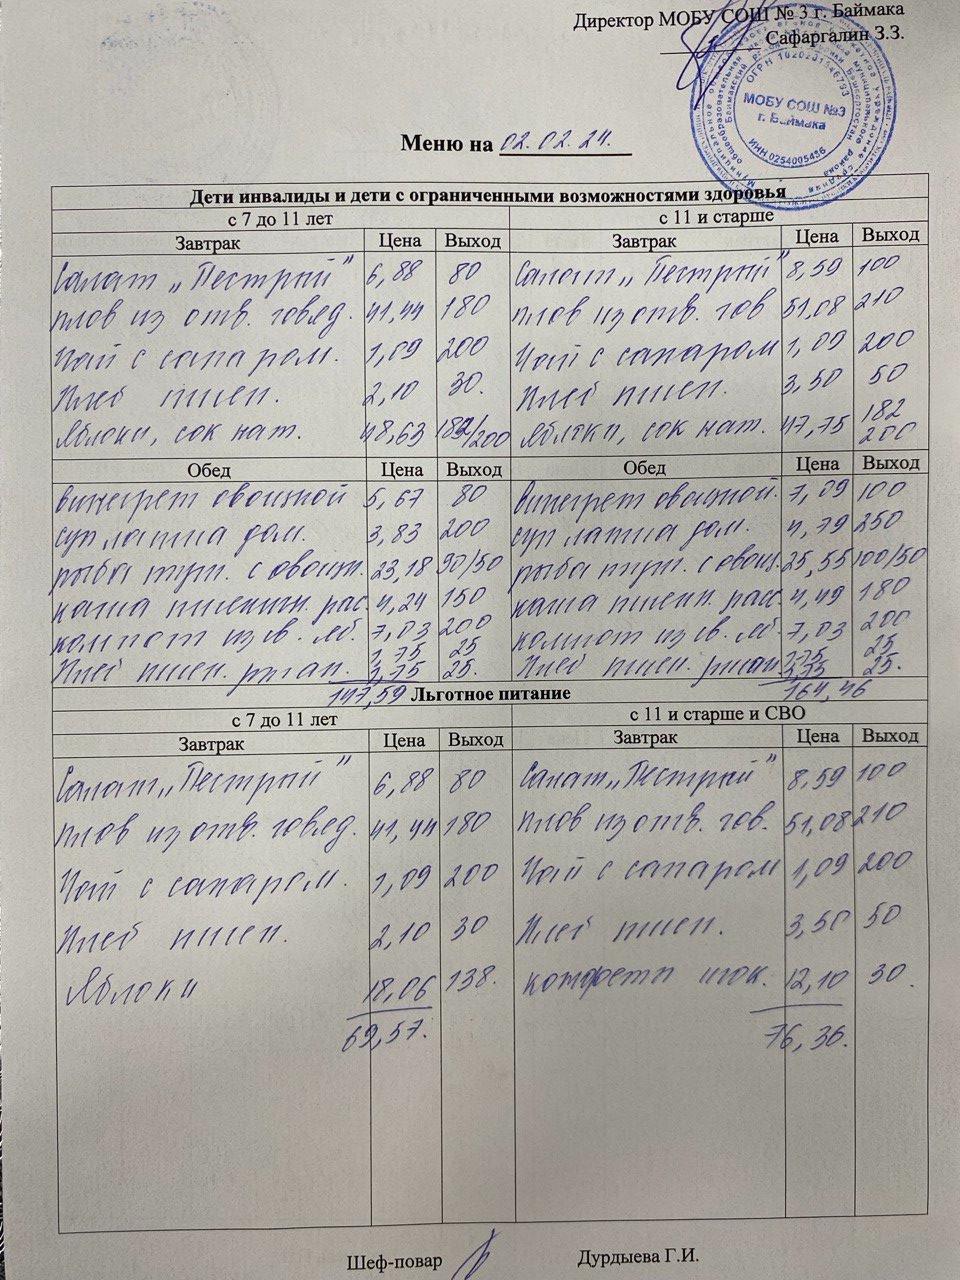 Директор МОБУ СОШ № 3 г. Баймака
Сафаргалин З.З.
ОГРН 1020201546793
МОБУ СОШ №3
г. Баймака
ИНН 0254005456
Меню на 02.02.24.
Дети инвалиды и дети с ограниченными возможностями здоровья
с 7 до 11 лет с 11 и старше
Завтрак Цена Выход Завтрак Цена Выход
Салат „Пестрый" 6,88 80 Салат „Пестрый" 8,59 100
Плов из отв. говяд. 41,44 180 Плов из отв. гов 51,08 210
Чай с сахаром. 1,09 200 Чай с сахаром 1,09 200
Хлеб пшен. 2,10 30. Хлеб пшен. 3,50 50
Яблоки, сок нат. 48,63 182/200 Яблоки, сок нат. 47,75 182 200
Обед Цена Выход Обед Цена Выход
винегрет овощной 5,67 80 винегрет овощной. 7,09 100
суп лапша дом. 3,83 200 суп лапша дом. 4,79 250
рыба туш. с овощ. 23,18 90/50 рыба туш. с овощ. 25,55 100/50
каша пшенич. рас. 4,24 150 каша пшенн. расс. 4,49 180
компот из св. яб. 7,03 200 компот из св. яб. 7,03 200
1,75 25 1,75 25
Хлеб пшен. ржан. 1,75 25. Хлеб пшен. ржан 1,75 25.
147,59 Льготное питание 164,46
с 7 до 11 лет с 11 и старше и СВО
Завтрак Цена Выход Завтрак Цена Выход
Салат „Пестрый" 6,88 80 Салат „Пестрый" 8,59 100
Плов из отв. говяд. 41,44 180 Плов из отв. гов. 51,08 210
Чай с сахаром. 1,09 200 Чай с сахаром 1,09 200
Хлеб пшен. 2,10 30 Хлеб пшен. 3,50 50
Яблоки 18,06 138. конфеты шок. 12,10 30.
69,57. 76,36.
Шеф-повар Дурдыева Г.И.